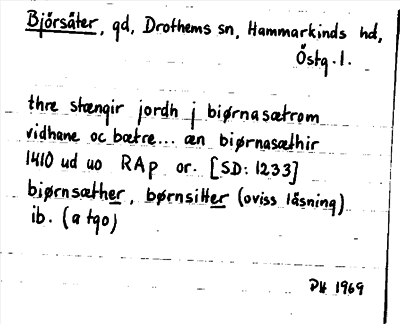 Björsäter, gd, Drothems sn, Hammarkinds hd,
Östg. l.
thre stængir jordh j biørnasætrom
vidhane oc bætre... æn biørnasæthir
1410 ud uo RAp or. [SD: 1233]
biørnsæther, børnsitter (oviss läsning)
ib. (a tgo)
1969